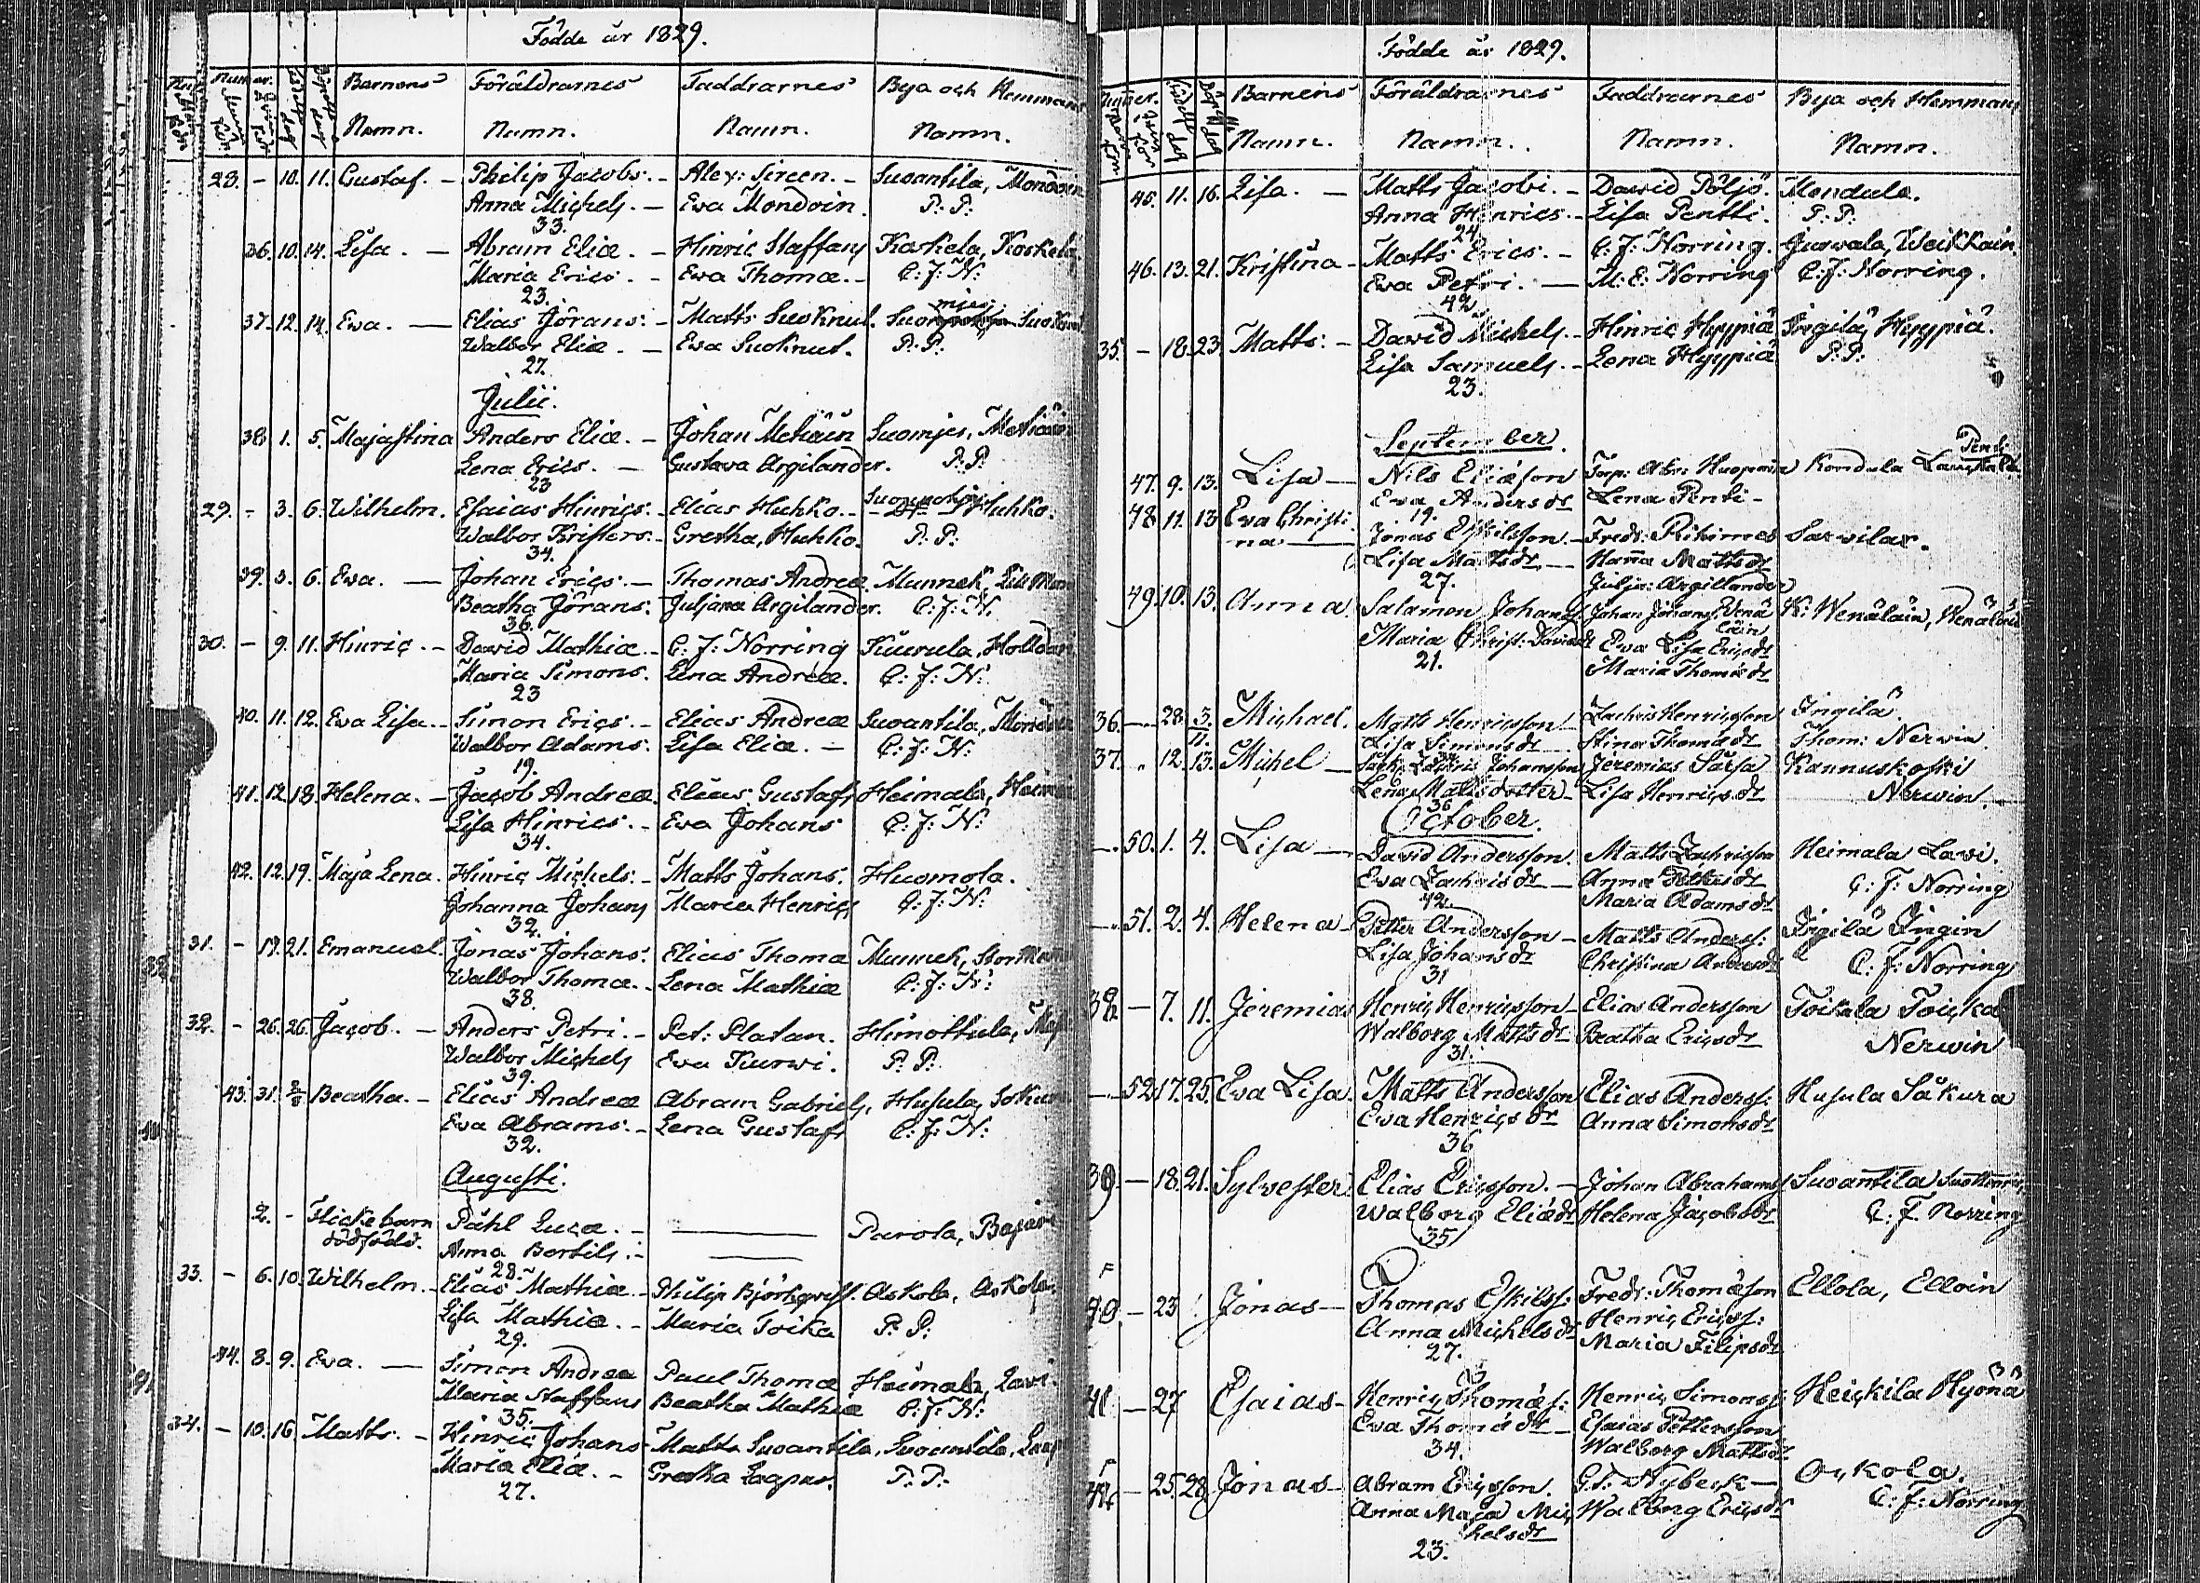 Födde år 1829.
Barnens Föräldrarnes Faddrarnes Bya och Hemmans
Namn. Namn. Namn. Namn.
28. - 10. 11. Gustaf. - Philip Jacobs. - Alex: Sireen. - Suvantila, Mondoin
Anna Michels. - Eva Mondoin. P: P:
33.
36. 10. 14. Lisa. - Abram Eliæ - Hinric Staffans Koskela, Koskela
Maria Erics. - Eva Thomæ. - C: J: N:
23.
37. 12. 14. Ewa. - Elias Görans: - Matts SuoKnut. Suomies SuoKnut
Walbor Eliæ. - Ewa SuoKnut. P: P:
27.
Julii.
38. 1. 5. Majastina Anders Eliæ. - Johan Metiäin Suomjes, Metiäin
Lena Erics. - Gustava Argilander. P: P:
23
29. - 3. 6. Wilhelm. Esaias Hinrics. - Elias Huhko. - Huhko.
Walbor Kristers. - Gretha Huhko. P: P:
34.
39. 3. 6. Ewa. - Johan Erics. - Thomas Andreæ Munnek, Lill
Beatha Görans. Juljana Argilander. C: J: N:
36.
30. - 9. 11. Hinric. - David Mathiæ. - C. J: Norring Kuurula,
Maria Simons. Lena Andreæ. C: J: N:
23
40. 11. 12. Ewa Lisa. - Simon Erics. - Elias Andreæ Suvantila,
Walbor Adams. Lisa Eliæ. - C: J: N:
19.
41. 12. 18. Helena. - Jacob Andreæ. Elias Gustafs Heimala,
Lisa Hinrics. - Ewa Johans C: J: N:
34.
42. 12. 19. Maja Lena. Hinric Michels. - Matts Johans. Huomola.
Johanna Johans Maria Henrics C: J: N:
32.
31. - 17. 21. Emanuel. Jonas Johans. Elias Thomæ Munnek, Stor
Walbor Thomæ. - Lena Mathiæ C: J: N:
38.
32. - 26. 26. Jacob. - Anders Petri. - Pet: Platan. Himottula,
Walbor Michels Eva Kurwi. P: P:
39.
43. 31. 2/8 Beatha. - Elias Andreæ Abram Gabriels, Husula,
Eva Abrams. - Lena Gustafs C: J: N:
32.
Augusti.
2. - Flickebarn Påhl Lucæ. -
dödfödd. Anna Bertils. -
28.
33. - 6. 10. Wilhelm. - Elias Mathiæ. - Philip Björkqvist. Askola, Askola
Lisa Mathiæ. - Maria Toika P: P:
29.
44. 8. 9. Eva. - Simon Andreæ Paul Thomæ Heimala, Lavi.
Maria Staffans Beatha Mathiæ C: J: N:
35.
34. - 10. 16. Matts. - Hinric Johans Matts Suvantila, Suvantila,
Maria Eliæ. - Gretha Lagpus. P: P:
27.
Födde år 1829.
Barnens Föräldrarnes Faddrarnes Bya och Hemmans
Namn. Namn. Namn. Namn.
45. 11. 16. Lisa. - Matts Jacobi. - David Pöljö. Mondula.
Anna Henrics. - Lisa Pentti. P: P:
24.
46. 13. 21. Kristina - Matts Erics. - C. J: Norring. Jurvala, Weikkain.
Eva Petri. - M: E: Norring C: J: Norring.
42.
35. - 18. 23. Matts: - David Michels. - Hinric Hyypiä Ingilä, Hyypiä.
Lisa Samuels. - Lena Hyypiä P: P:
23.
September.
47. 9. 13. Lisa - Nils Eliæson Kondula
Eva Andersdr Lena Penti -
19.
48. 11. 13 Eva Christi- Jonas Eskilsson. - Fredr: Sarvilax.
na - Lisa Mattsdr - Hanna Mattsdr
27. Julja: Argillander
49. 10. 13. Anna Salamon Johans Johan Johans: Wenä K: Wenäläin, Wenäläin
läin
Maria Christ: Davidsdr Eva Lisa Ericsdr
21. Maria Thomædr
36. - 28. 3/11. Michael. Matts Henricsson - Zachris Henricsson Ingilä.
Lisa Simonsdr Stina Thomædr Thom: Nerwin
37. " 12. 13. Michel - Johansson Jeremias Särsa Kannuskoski
Lena Mattsdotter - Lisa Henricsdr Nerwin.
36
October.
50. 1. 4. Lisa - David Andersson. Matts Zachrisson Heimala Lavi.
Eva Zachrisdr - Anna C: J: Norring
42. Maria Adamsdr
51. 2. 4. Helena - Petter Andersson - Matts Anderss: Ingilä Ingin
Lisa Johansdr Christina Andersdr C: J: Norring
31
38 - 7. 11. Jeremias Henric Henricsson - Elias Andersson Toikala Toicka
Walborg Mattsdr Beatha Ericsdr Nerwin
31.
52. 17. 25. Eva Lisa. Matts Andersson Elias Anderss: Husula Säkura
Eva Henricsdr Anna Simonsdr
36
39. - 18. 21. Sylvester Elias Ericsson. - Johan Abrahams Suvantila
Walborg Eliædr Helena Jacobsdr C: J. Norring
35
40. - 23 Jonas - Thomas Eskilss: Fredr: Thomæson Ellola, Elloin
Anna Michelsdr Henric Ericss:
27. Maria Filipsdr
41 - 27 Esaias - Henric Thomæs: Henric Simonss: Heickila Hyönä
Eva Thomædr - Esaias Pettersson
34. Walborg Mattsdr
42 - 25. 28 Jonas - Abram Ericsson. G: F: Nybeck - Ockola.
Anna Maja Mic Walborg Ericsdr C: J: Norring
helsdr
23.